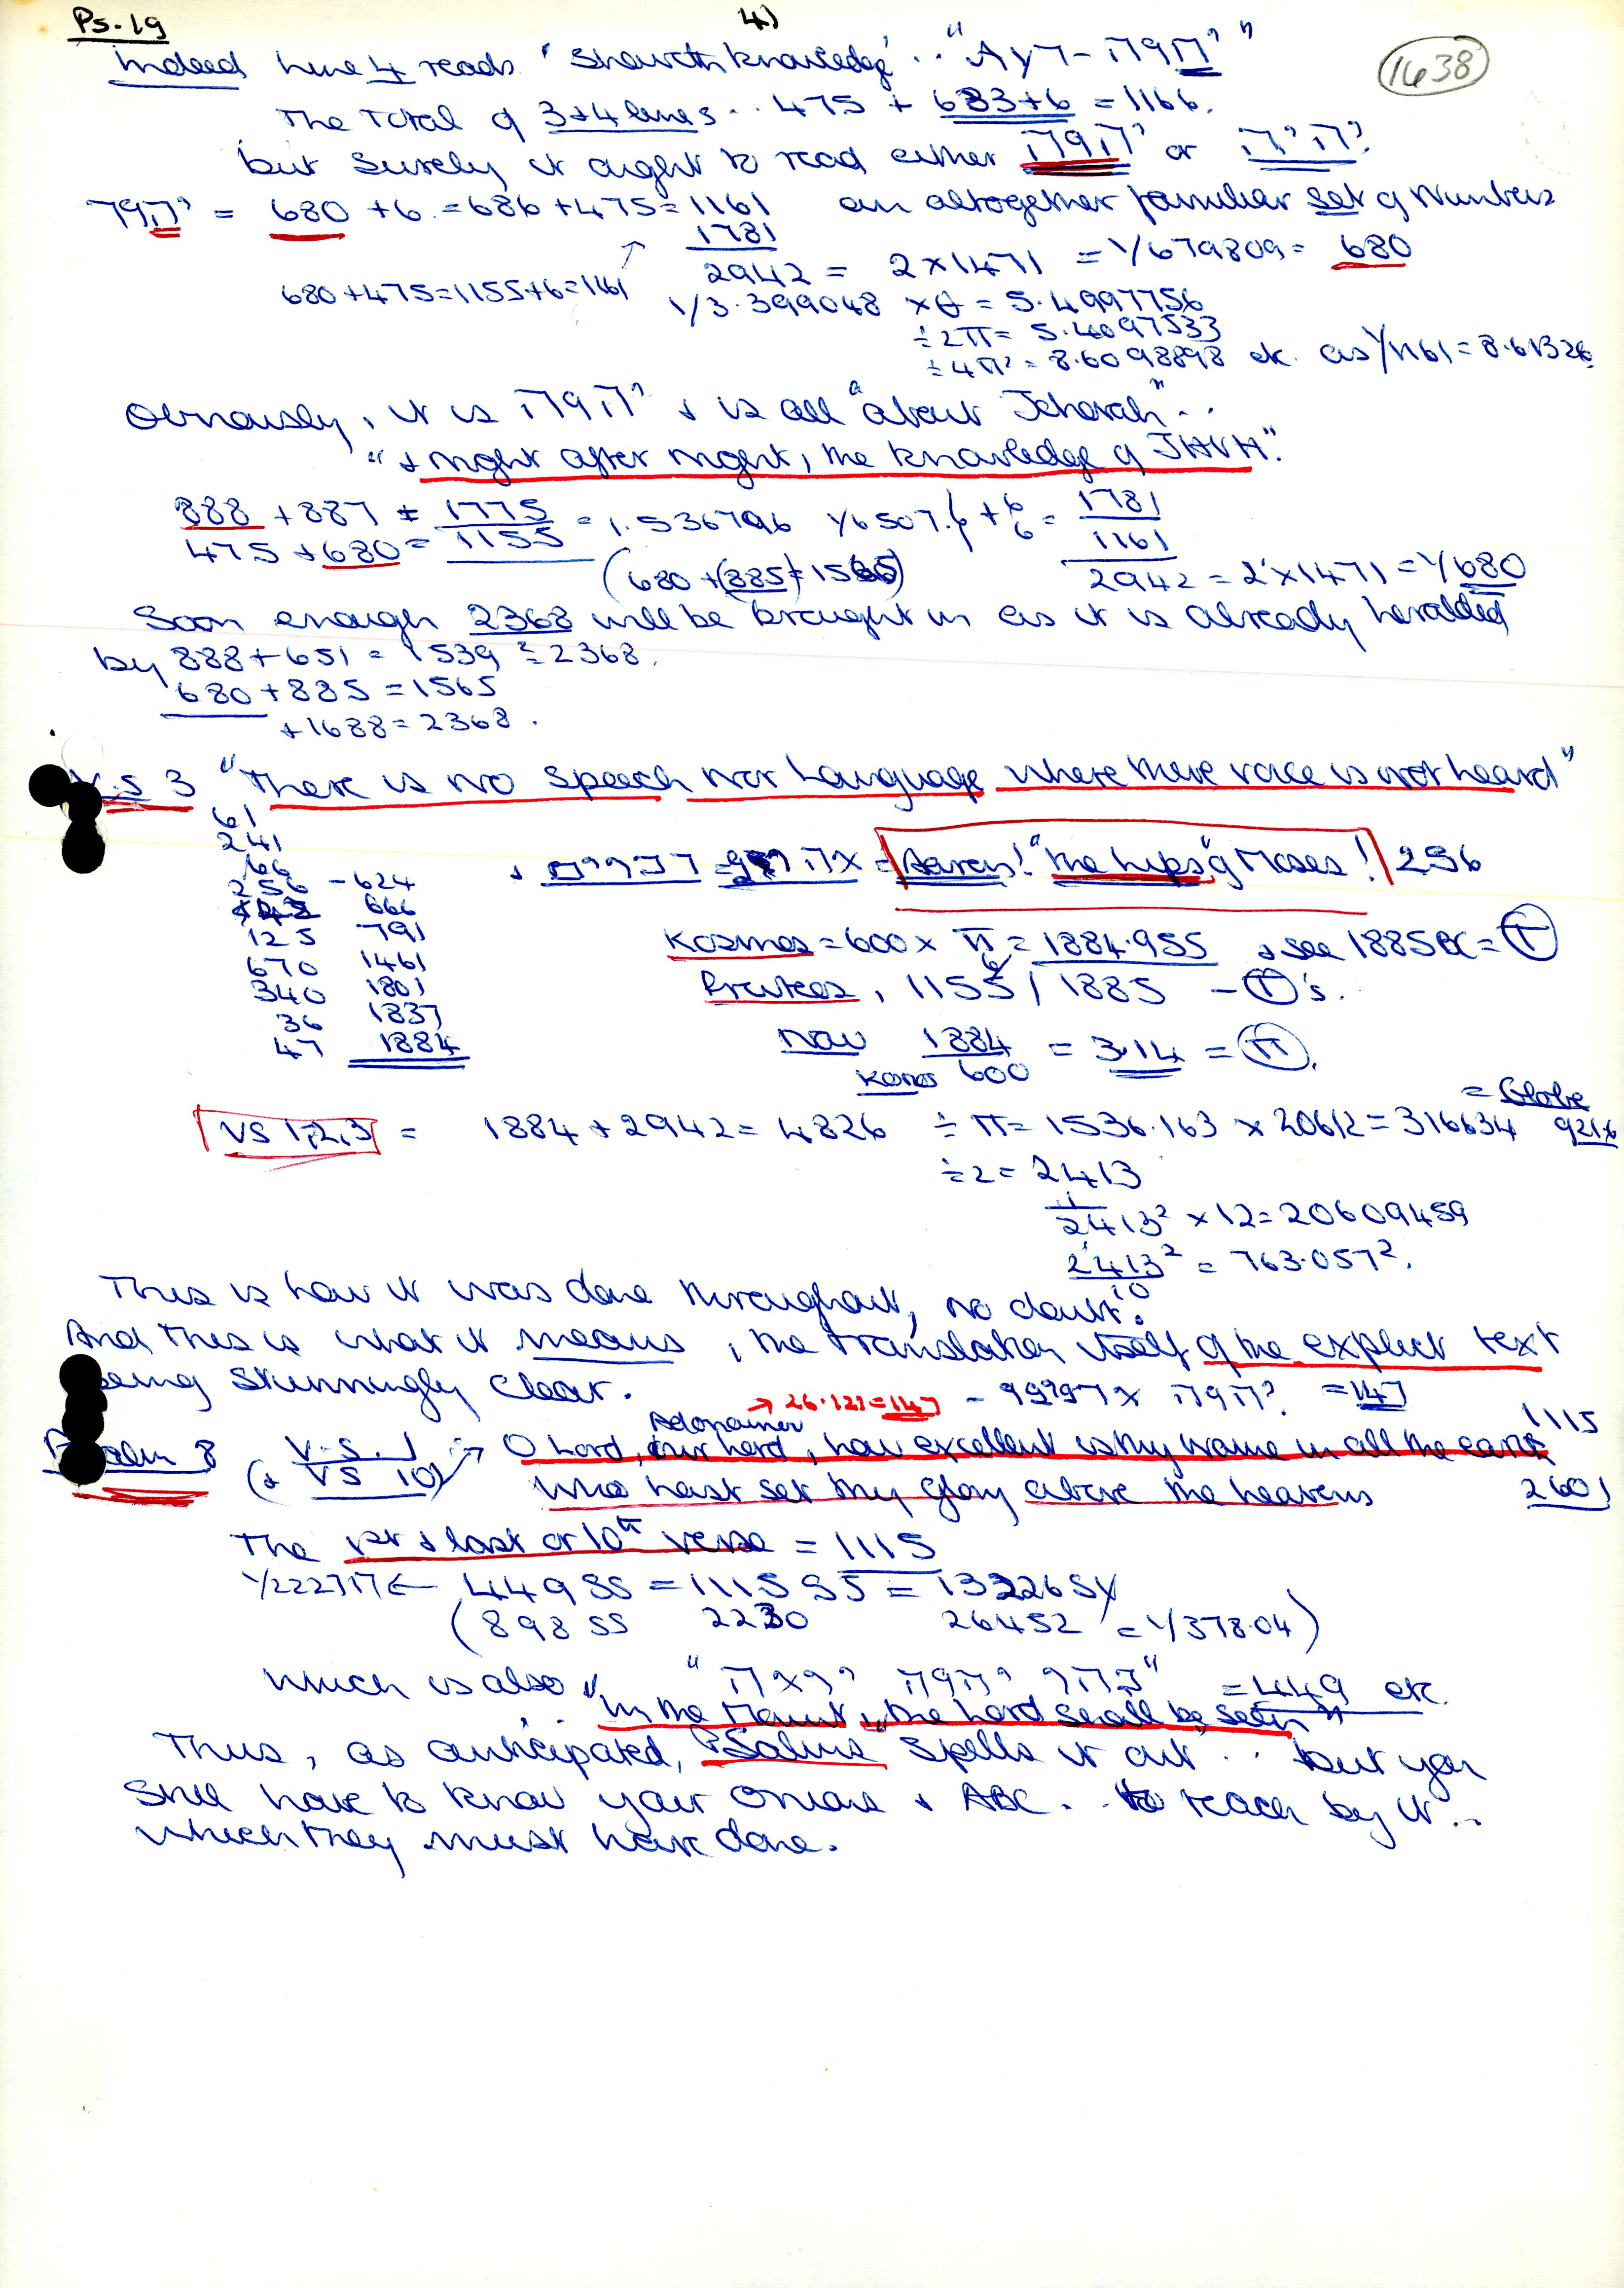 Ps. 19
4)
1638
Indeed line 4 reads 'sheweth knowledge' ..
The Total of 3+4 lines .. 475 + 683+6 = 1166.
but surely it ought to read either יהוה or היה?
= 680 + 6 = 686 + 475 = 1161 an altogether familiar set of Numbers
1781
2942 = 2 x 1471 = 1/679809 = 680
680 + 475 = 1155 + 6 = 1161
1/3.399048 x θ = 5.4997756
÷ 2π = 5.4097533
÷ 4π² = 8.6098898 etc. as 1/1161 = 8.61326
Obviously, it is יהוה & is all "about Jehovah" ..
"& night after night, the knowledge of JHVH."
888 + 887 = 1775 = 1.536796 1/6507. + 6 = 1781
475 + 680 = 1155 6 1161
(680 + (885) = 1565) 2942 = 2 x 1471 = 1/680
Soon enough 2368 will be brought in as it is already heralded
by 888 + 651 = 1539 ÷ 2368.
680 + 885 = 1565
+ 1688 = 2368.
V.S 3 "There is no speech nor language where there voice is not heard"
61
241
66
256 - 624
42 666
125 791
670 1461
340 1801
36 1837
47 1884
= Aaron! "the lips" of Moses! 256
Kosmos = 600 x π = 1884.955 & see 1885 etc = T
Proteos, 1155 / 1885 - T's.
Now 1884 = 3.14 = π.
Kosmos 600
VS 1,2,3 = 1884 + 2942 = 4826 ÷ π = 1536.163 x 20612 = 316634
= Globe
9216
÷ 2 = 2413
1
2413² x 12 = 20609459
2413² = 763.057².
10
This is how it was done throughout, no doubt.
And this is what it means, the translation itself of the explicit text
being stunningly clear.
→ 26.121 = 147 - = 147
Psalm 8 (& V.S. 1
VS 10) Adonainov
O Lord, our Lord, how excellent is thy name in all the earth 1115
who hast set thy glory above the heavens 2601
The 1st & last or 10th verse = 1115
1/222717 ← 44985 = 111585 = 1322654
(89855 2230 26452 = 1/378.04)
Which is also "בהר יהוה יראה" = 449 etc.
"In the Mount, the Lord shall be seen"
Thus, as anticipated, "Psalms" spells it out .. but you
still have to know your onions & ABC .. to teach by it ..
which they must have done.